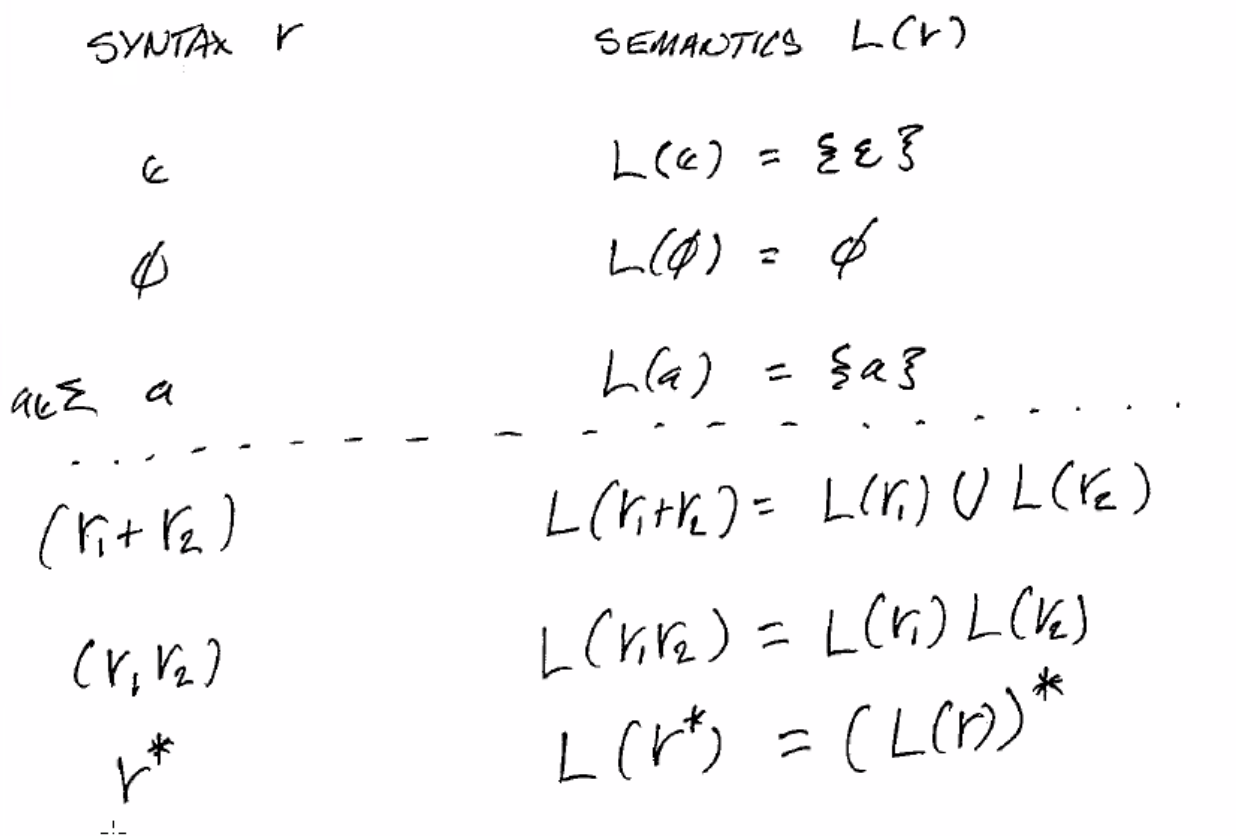 SYNTAX r SEMANTICS L(r)
ε L(ε) = {ε}
∅ L(∅) = ∅
a∈Σ a L(a) = {a}
(r₁+r₂) L(r₁+r₂) = L(r₁) ∪ L(r₂)
(r₁r₂) L(r₁r₂) = L(r₁)L(r₂)
r* L(r*) = (L(r))*